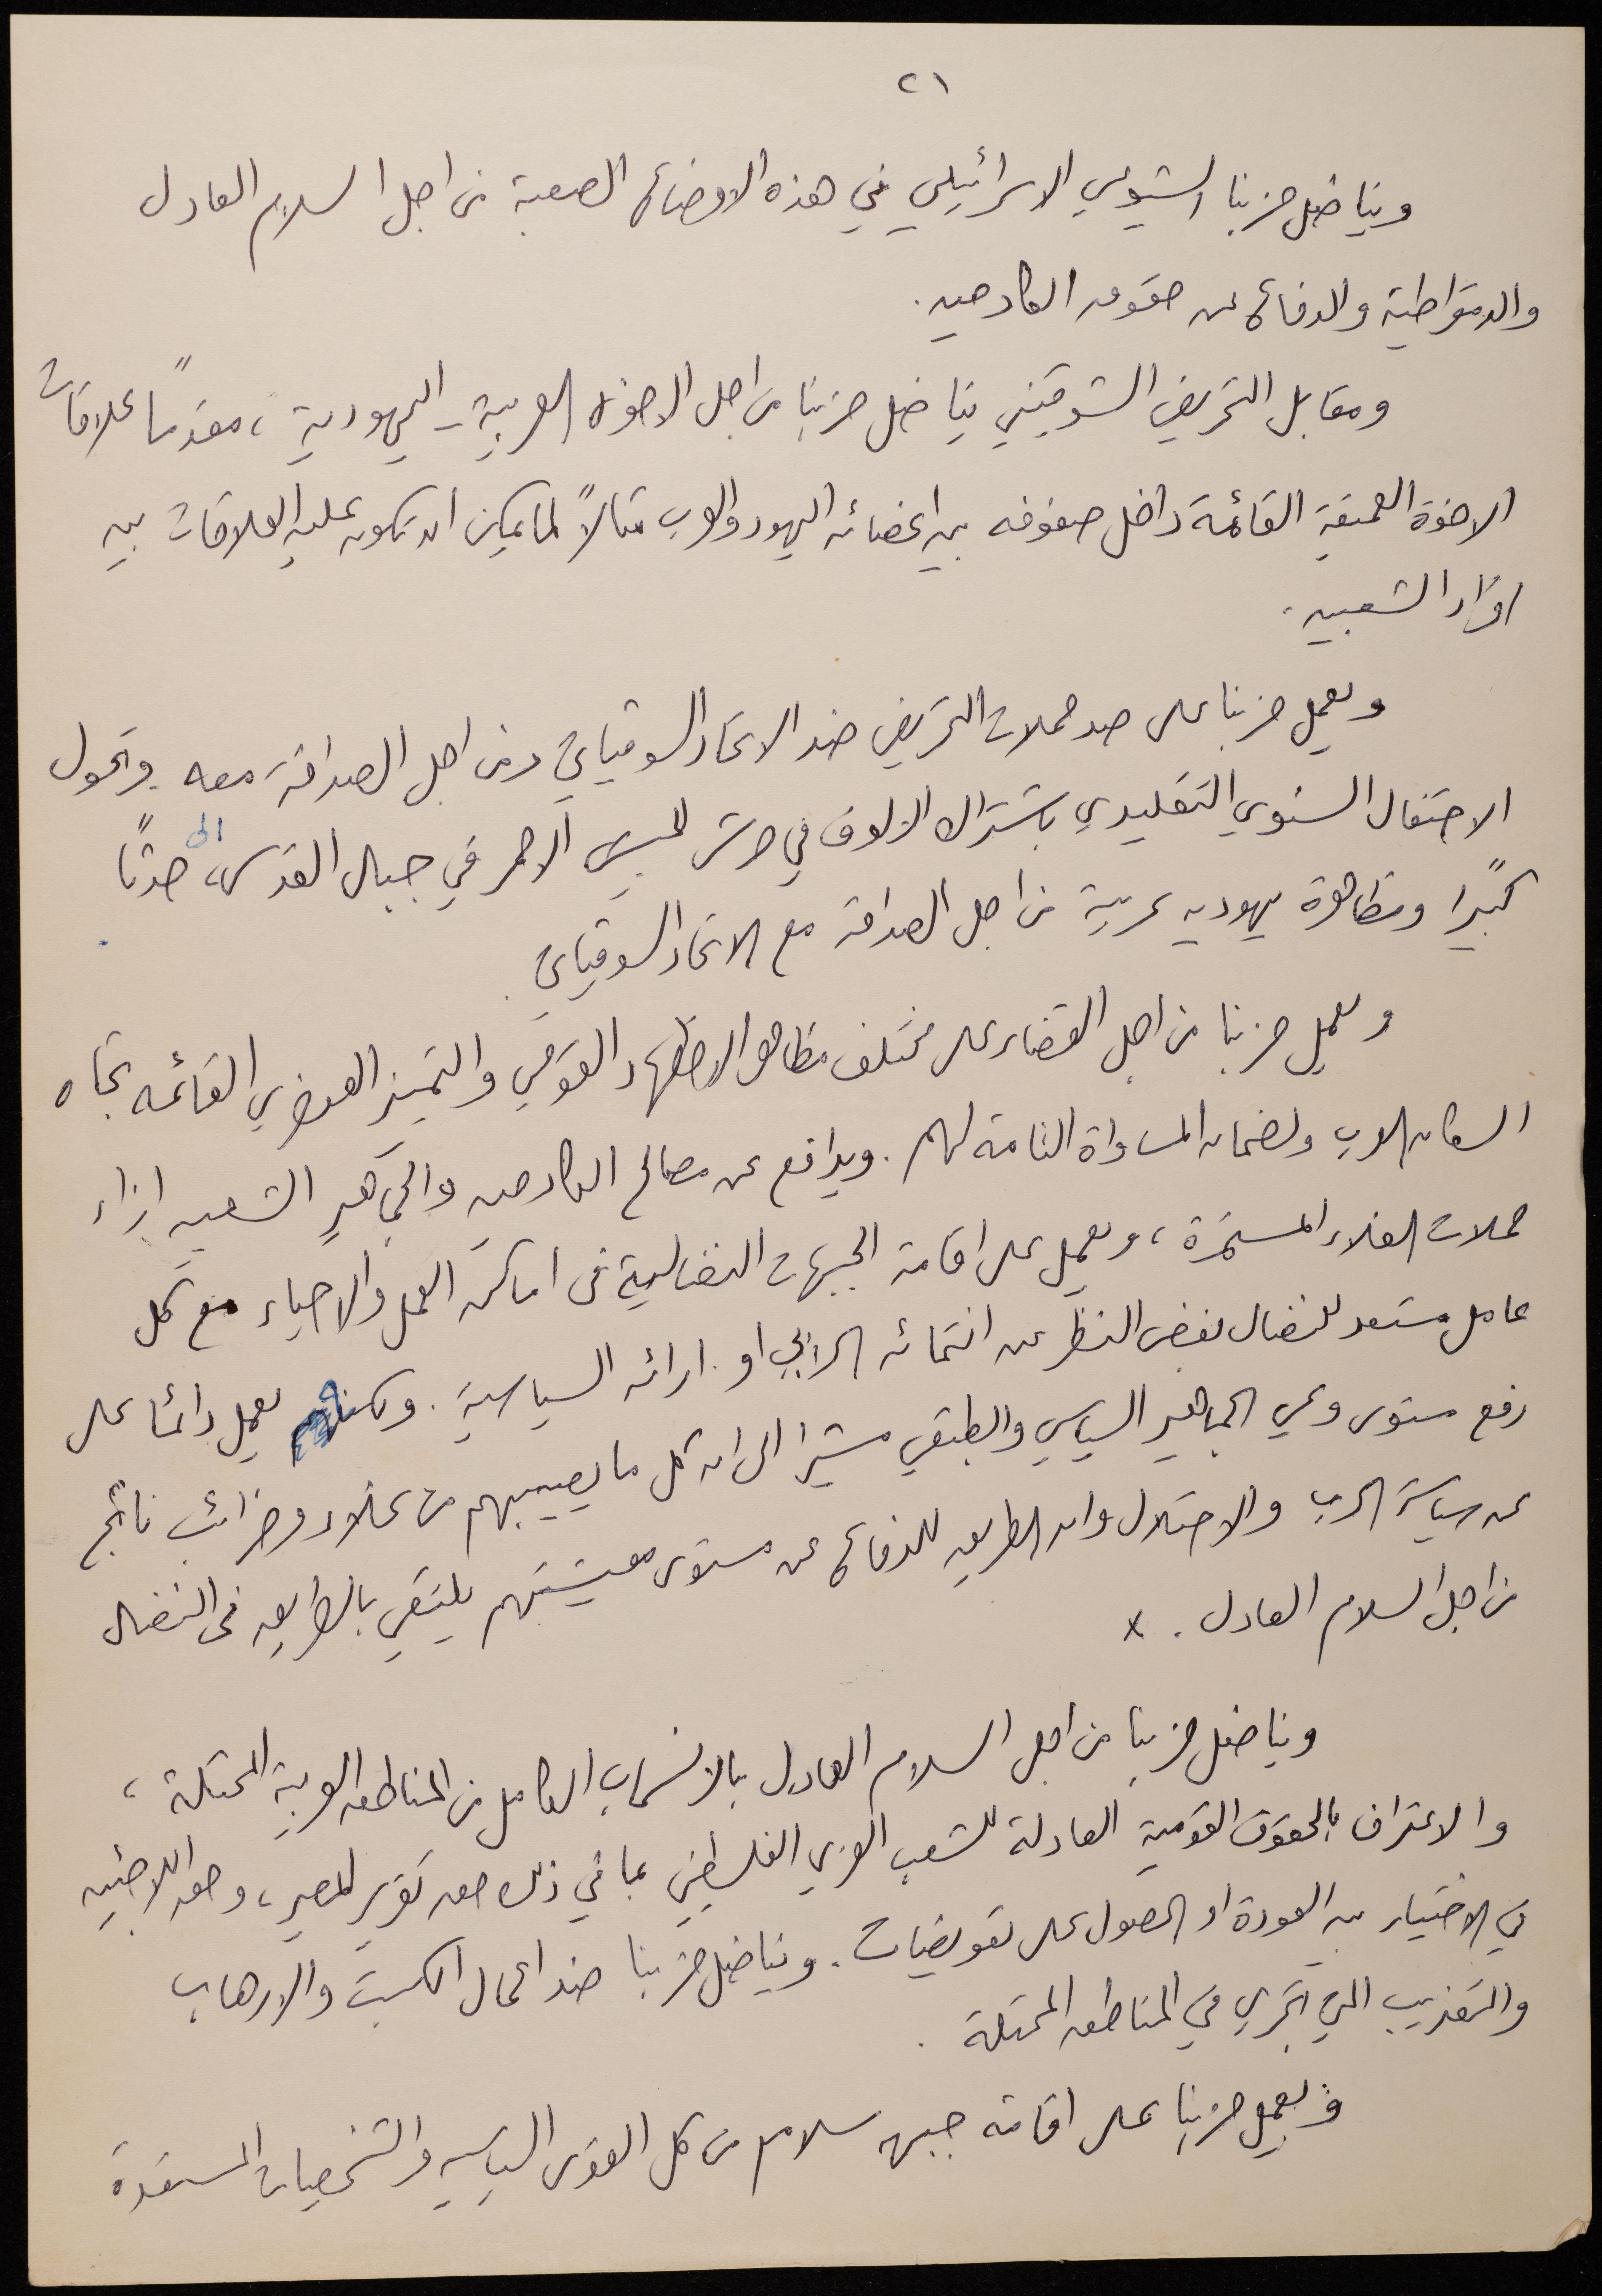 ٢١
ويناضل حزبنا الشيوعي الاسرائيلي في هذه الاوضاع الصعبة من اجل السلام العادل
والدمقراطية والدفاع عن حقوق الكادحين.
ومقابل التحريض الشوڤيني يناضل حزبنا من اجل الاخوة العربية - اليهودية، مقدماً علاقات
الاخوة العميقة القائمة داخل صفوفه بين اعضائه اليهود والعرب مثالاً لما يمكن ان تكون عليه العلاقات بين
افراد الشعبين.
ويعمل حزبنا على صد حملات التحريض ضد الاتحاد السوڤياتي ومن اجل الصداقة معه. وتحول
الاحتفال السنوي التقليدي باشتراك الالوف في حرش الجيش الاحمر في جبال القدس، الى حدثاً
كبيرا ومظاهرة يهودية عربية من اجل الصداقة مع الاتحاد السوڤياتي.
ويعمل حزبنا من اجل القضاء على مختلف مظاهر الاضطهاد القومي والتمييز العنصري القائمه تجاه
السكان العرب ولضمان المساواة التامة لهم. ويدافع عن مصالح الكادحين والجماهير الشعبيه ازاء
حملات الغلاء المستمرة، ويعمل على اقامة الجبهات النضالية في اماكن العمل والاحياء مع كل
عامل مستعد للنضال بغض النظر عن انتمائه الحزبي او ارائه السياسية. ولكنه يعمل دائما على
رفع مستوى وعي الجماهير السياسي والطبقي مشيرا الى ان كل ما يصيبهم من غلاء وضرائب ناتج
عن سياسة الحرب والاحتلال وان الطريق للدفاع عن مستوى معيشتهم يلتقي بالطريق في النضال
من اجل السلام العادل. x
ويناضل حزبنا من اجل السلام العادل بالانسحاب الكامل من المناطق العربية المحتلة،
والاعتراف بالحقوق القومية العادلة للشعب العربي الفلسطيني بما في ذلك حق تقرير المصير، وحق اللاجئين
في الاختيار بين العودة او الحصول على تعويضات. ويناضل حزبنا ضد اعمال الكبت والارهاب
والتعذيب التي تجري في المناطق المحتلة.
ويعمل حزبنا على اقامة جبهة سلام من كل القوى السياسيه والشخصيات المستعدة